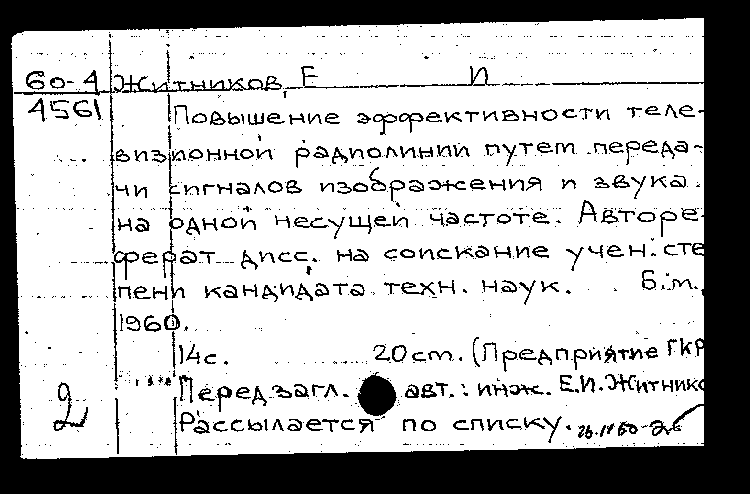 60-4 Житников, Е И
4561 Повышение эффективности теле-
визионной радиолинии путем переда-
чи сигналов изображения и звука
на одной несущей частоте. Авторе-
ферат дисс. на соискание учен. сте
пени кандидата техн. наук. Б.м.,
1960.
14с. 20cm. (Предприятие ГКР
Перед загл. авт.: инж. Е.И. Житнико
2 Рассылается по списку.